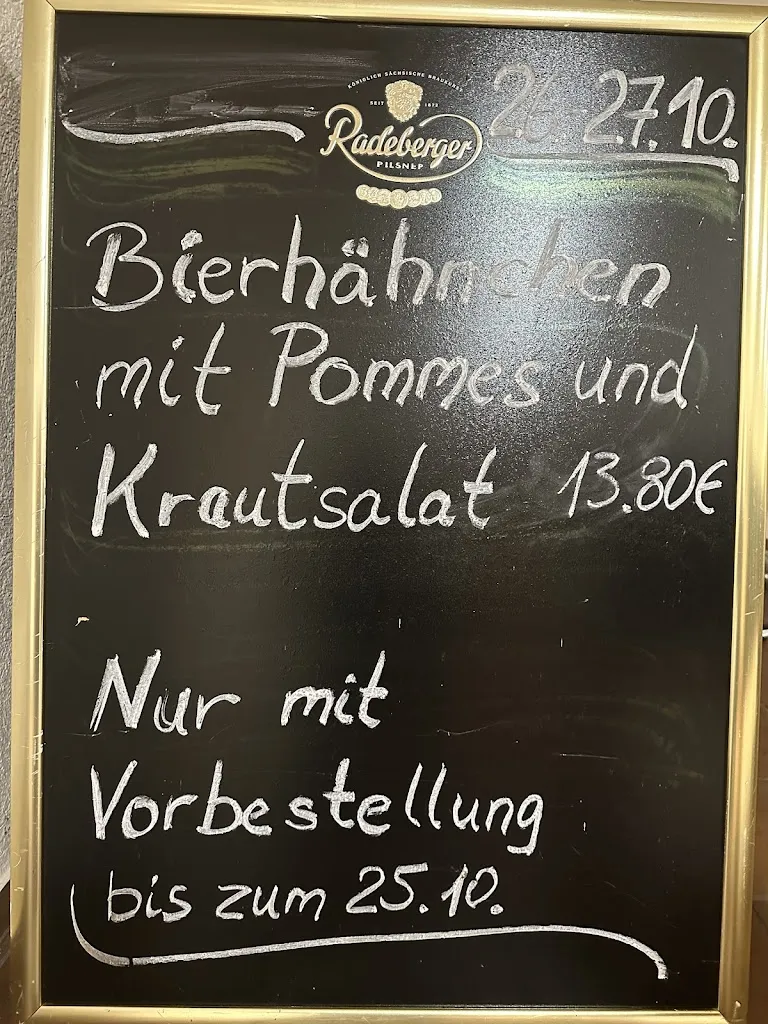 KÖNIGLICH SÄCHSISCHE BRAUEREI
SEIT 1872
Radeberger
PILSNER
27.10.
Bierhähnchen
mit Pommes und
Krautsalat 13.80€
Nur mit
Vorbestellung
bis zum 25.10.